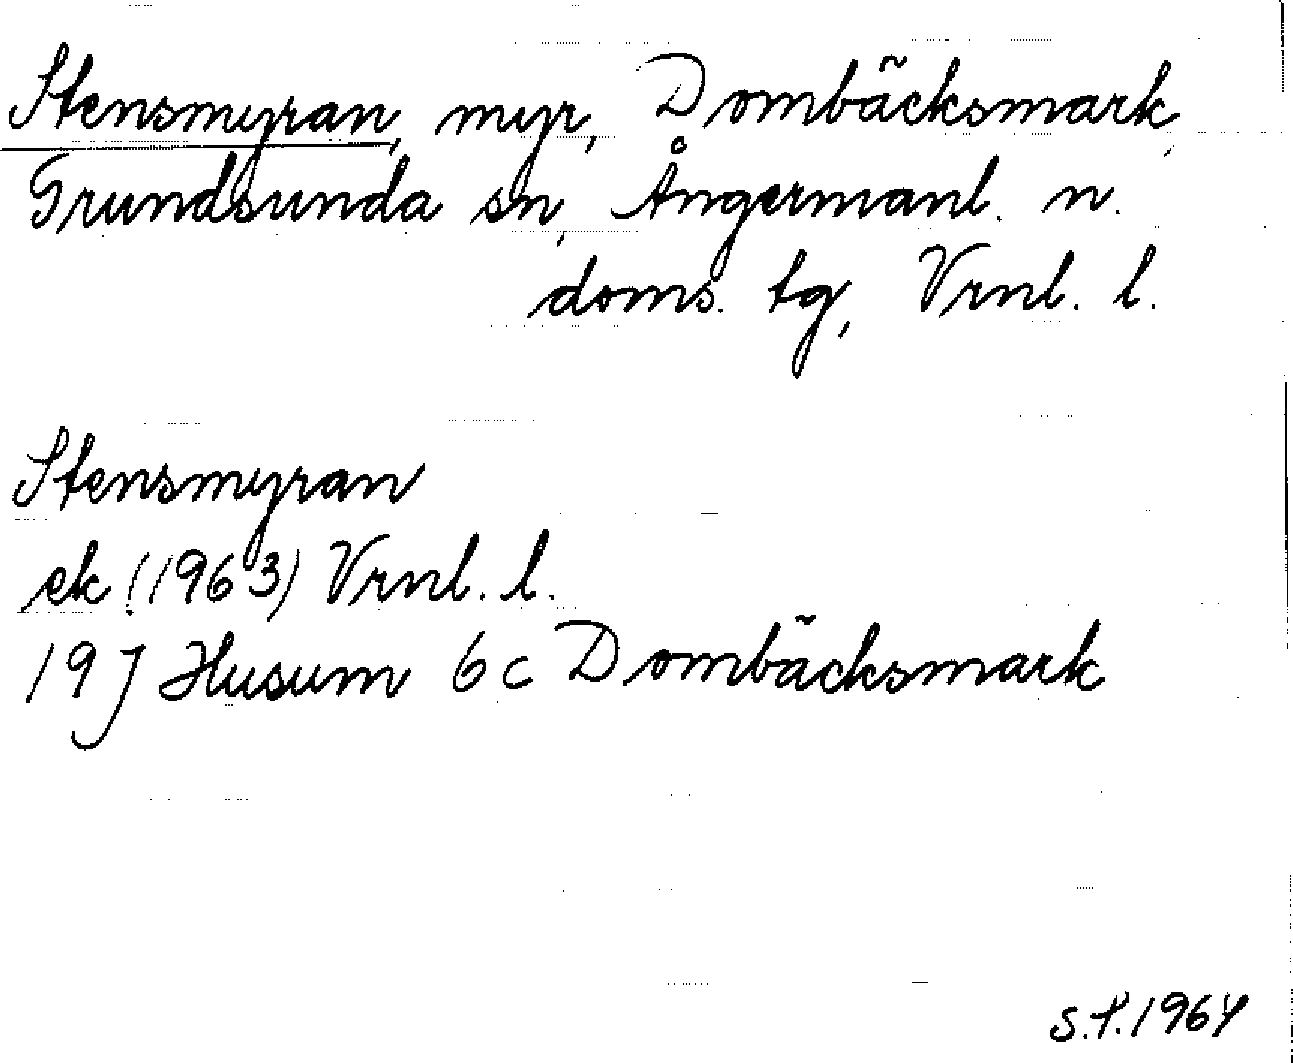 Stensmyran, myr, Dombäcksmark,
Grundsunda sn, Ångermanl. n.
doms. tg, Vrnl. l.
Stensmyran
ek (1963) Vrnl. l.
19J Husum 6c Dombäcksmark
S.P. 1964